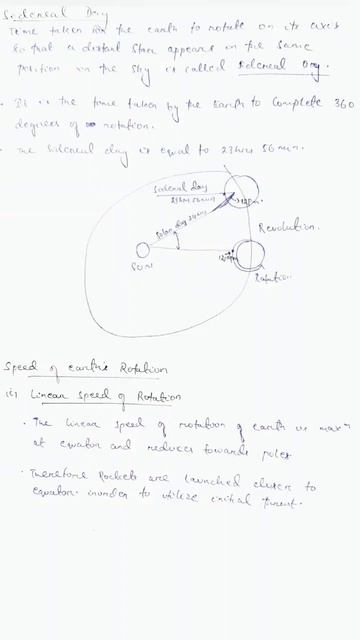 Sidereal Day
Time taken for the earth to rotate on its axis
so that a distant star appears in the same
position in the sky is called Sidereal Day.
• It is the time taken by the Earth to complete 360
degrees of rotation.
• The sidereal day is equal to 23hrs 56min.
Sidereal day
23hrs 56min
12pm
Solar day 24hrs
Revolution.
SUN
12pm
Rotation
Speed of earth's Rotation
(i) Linear Speed of Rotation
• The linear speed of rotation of earth is maxm
at equator and reduces towards poles
• Therefore Rockets are launched closer to
equator inorder to utilize initial